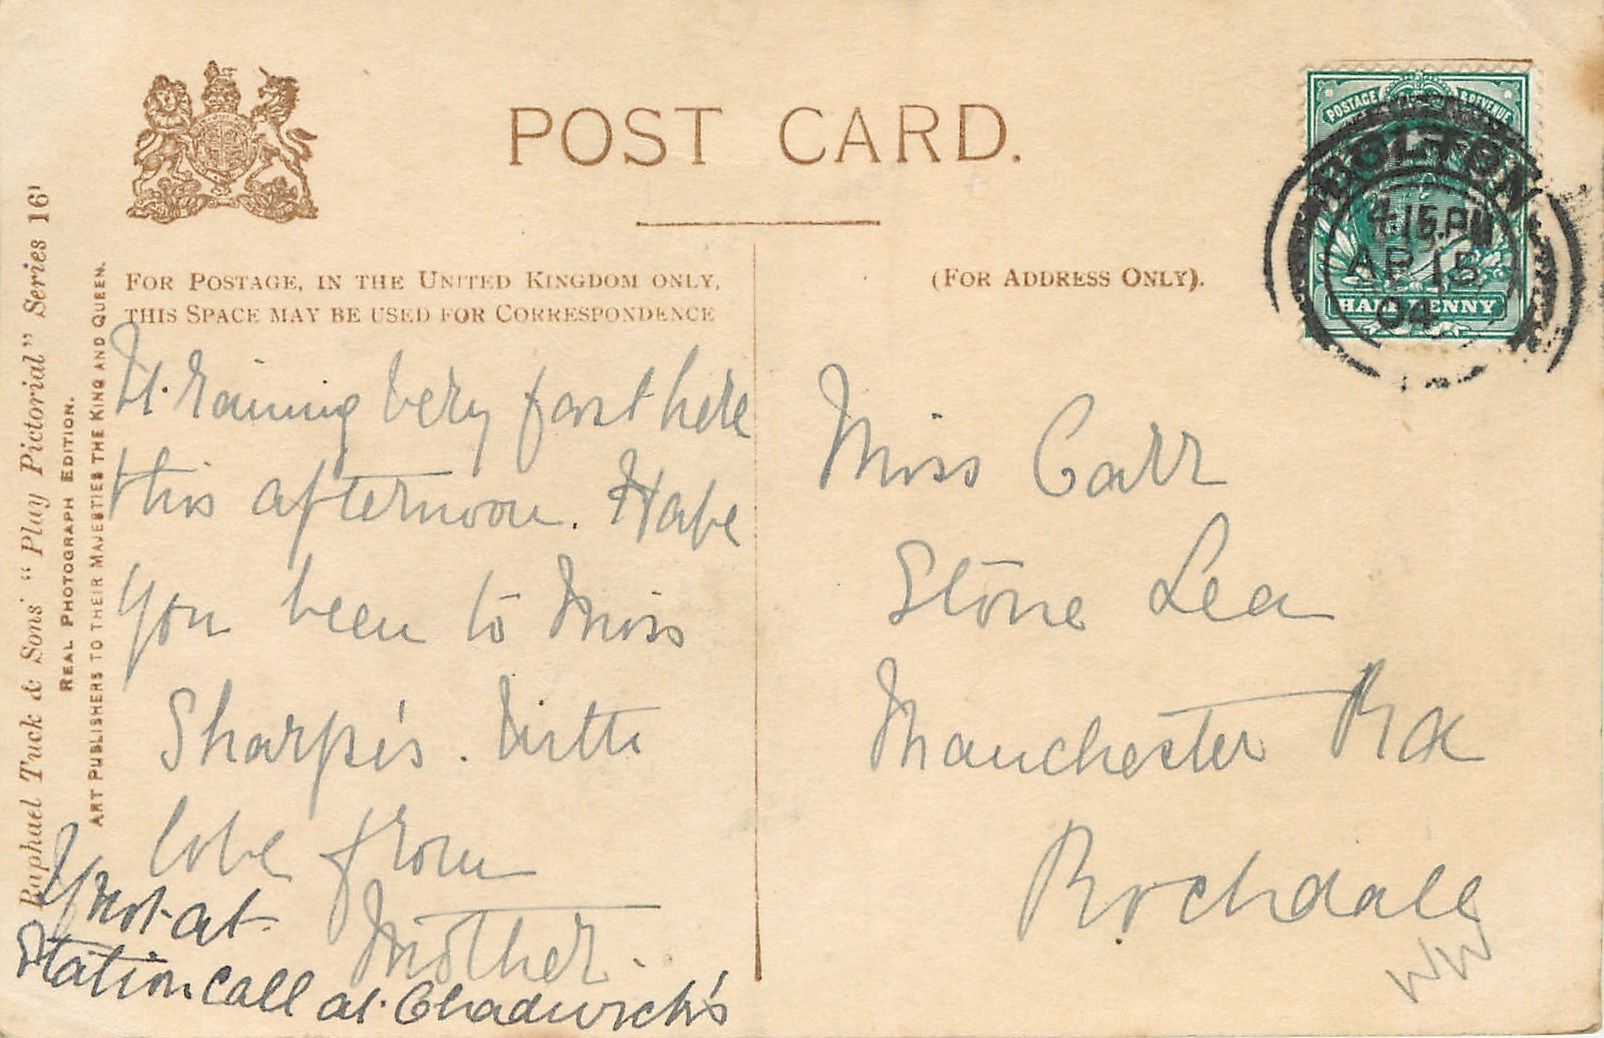 POST CARD.
FOR POSTAGE, IN THE UNITED KINGDOM ONLY,
THIS SPACE MAY BE USED FOR CORRESPONDENCE
(FOR ADDRESS ONLY).
Raphael Tuck & Sons' "Play Pictorial" Series 16'
REAL PHOTOGRAPH EDITION.
ART PUBLISHERS TO THEIR MAJESTIES THE KING AND QUEEN.
POSTAGE & REVENUE
HALFPENNY
BOLTON
4.15.PM
AP 15
04
raining very fast here
this afternoon. Have
you been to Miss
Sharpe's. With
love from
Mother.
If not at
Station call at Chadwick's
Miss Carr
Stone Lea
Manchester Rd
Rochdale